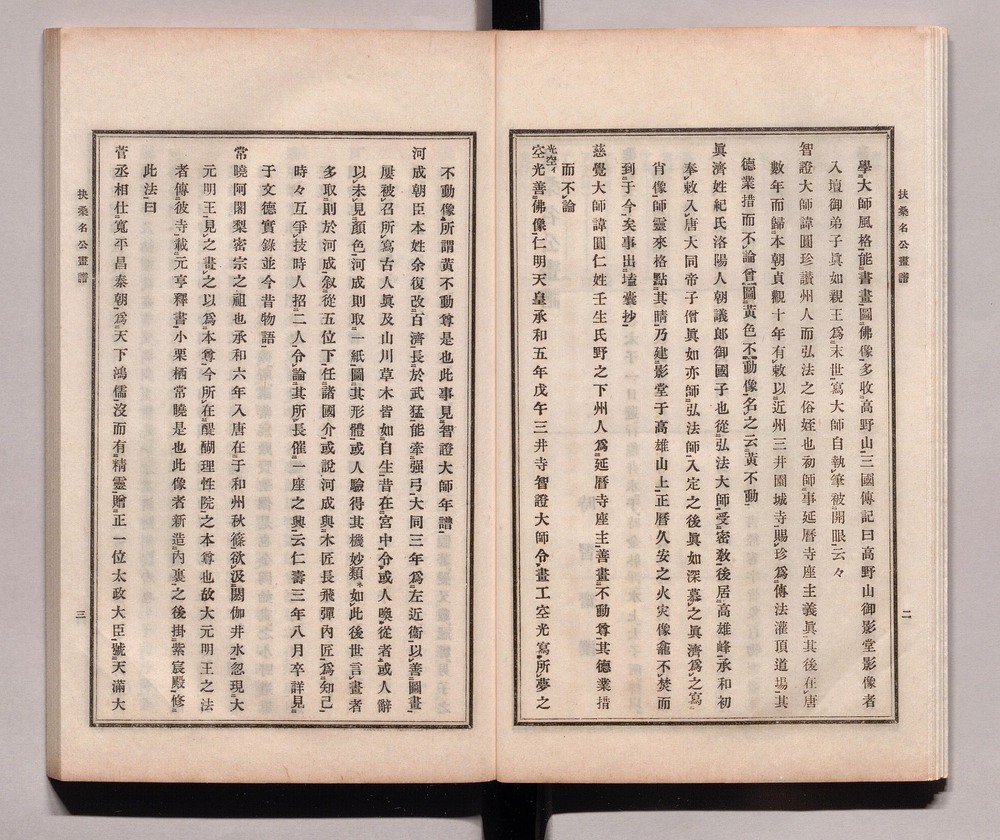 扶桑名公畫譜
二
學大師風格能書畫圖佛像多收高野山三國傳記曰高野山御影堂影像者
入壇御弟子眞如親王爲末世寫大師自執筆被開眼云々
智證大師諱圓珍讃州人而弘法之俗姪也初師事延曆寺座主義眞其後在唐
數年而歸本朝貞觀十年有敕以近州三井園城寺賜珍爲傳法灌頂道場其
德業措而不論曾圖黃色不動像名之云黃不動
眞濟姓紀氏洛陽人朝議郎御國子也從弘法大師受密教後居高雄峰承和初
奉敕入唐大同帝子僧眞如亦師弘法師入定之後眞如深慕之眞濟爲之寫
肖像師靈來格點其睛乃建影堂于高雄山上正曆久安之火灾像龕不焚而
到于今矣事出壒囊抄
慈覺大師諱圓仁姓壬生氏野之下州人爲延曆寺座主善畫不動尊其德業措
而不論
空光善佛像仁明天皇承和五年戊午三井寺智證大師令畫工空光寫所夢之
光空イ
不動像所謂黃不動尊是也此事見智證大師年譜
河成朝臣本姓余復改百濟長於武猛能牽强弓大同三年爲左近衞以善圖畫
屢被召所寫古人眞及山川草木皆如自生昔在宮中令或人喚從者或人辭
以未見顏色河成則取一紙圖其形體或人驗得其機妙類如此後世言畫者
多取則於河成敘從五位下任諸國介或說河成與木匠長飛彈內匠爲知己
時々互爭技時人招二人令論其所長催一座之興云仁壽三年八月卒詳見
于文德實錄並今昔物語
常曉阿闍梨密宗之祖也承和六年入唐在于和州秋篠欲汲閼伽井水忽現大
元明王見之畫之以爲本尊今所在醍醐理性院之本尊也故大元明王之法
者傳彼寺載元亨釋書小栗栖常曉是也此像者新造內裏之後掛紫宸殿修
此法曰
菅丞相仕寬平昌泰朝爲天下鴻儒沒而有精靈贈正一位太政大臣號天滿大
扶桑名公畫譜
三